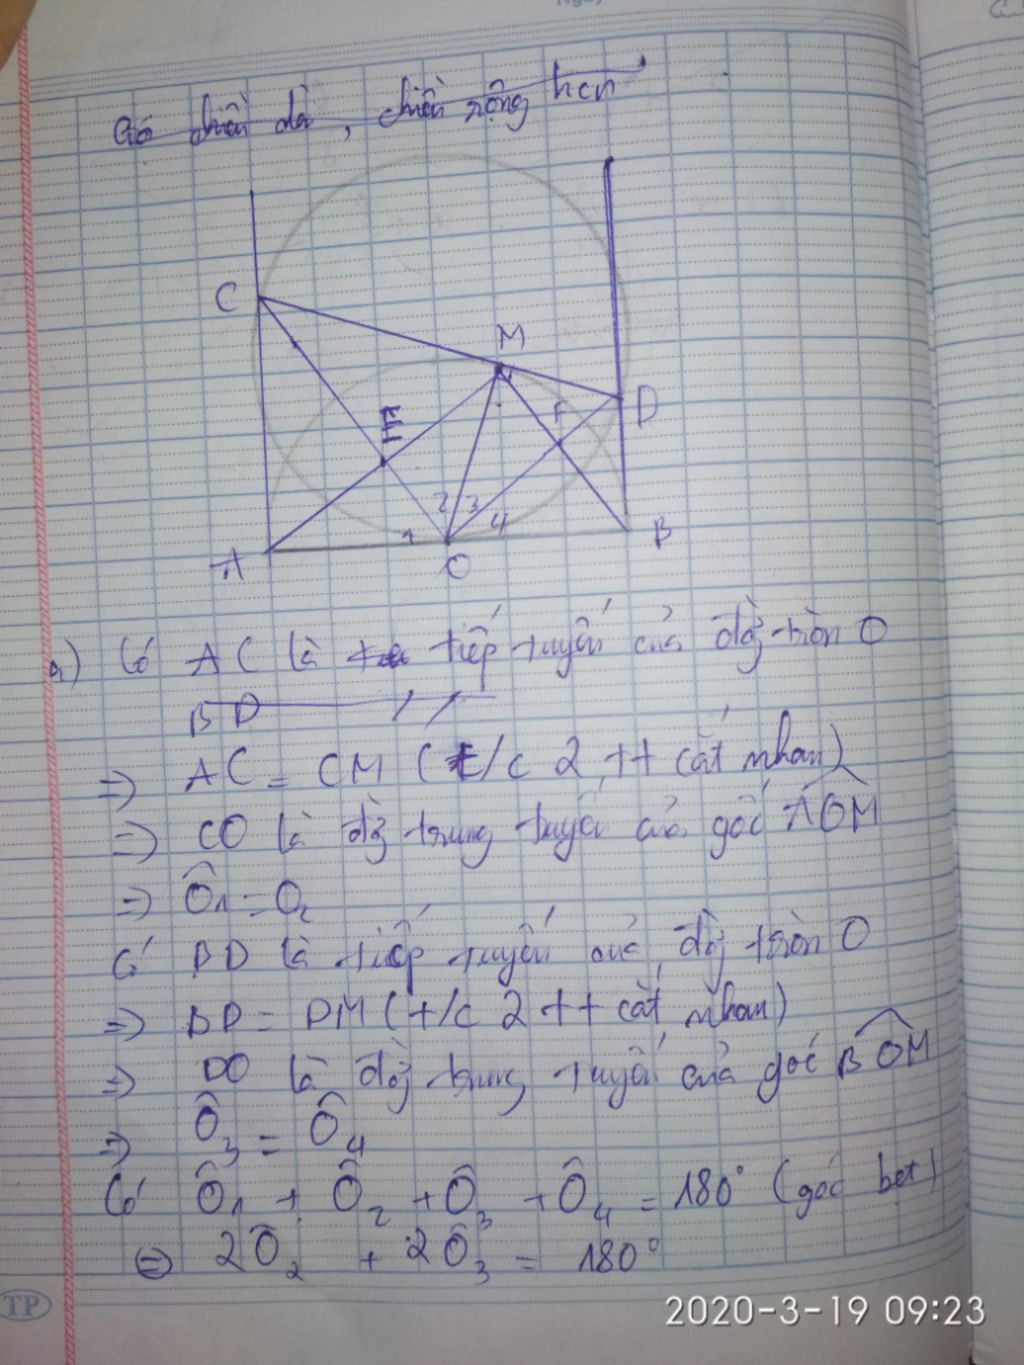 Có chiều dài, chiều rộng hcn
C
M
E
F
D
2 3
1 4
A
O
B
a) Có AC là tiếp tuyến của đg tròn O
BD // 
=> AC = CM (t/c 2 tt cắt nhau)
=> CO là đg trung tuyến của góc AOM
=> Ô1 = O2
Có BD là tiếp tuyến của đg tròn O
=> BD = DM (t/c 2 tt cắt nhau)
=> DO là đg trung tuyến của góc BOM
=> Ô3 = Ô4
Có Ô1 + Ô2 + Ô3 + Ô4 = 180° (góc bẹt)
<=> 2Ô2 + 2Ô3 = 180°
TP
2020-3-19 09:23